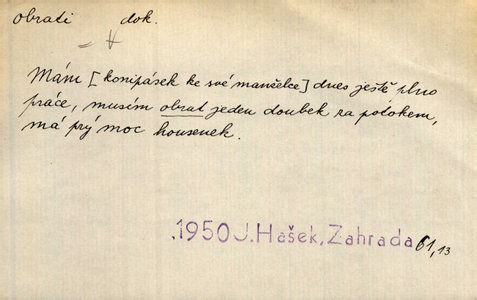 obrati dok.
Mám [konipásek ke své manželce] dnes ještě plno
práce, musím obrat jeden doubek za potokem,
má prý moc housenek.
1950 J. Hašek, Zahrada 61,13